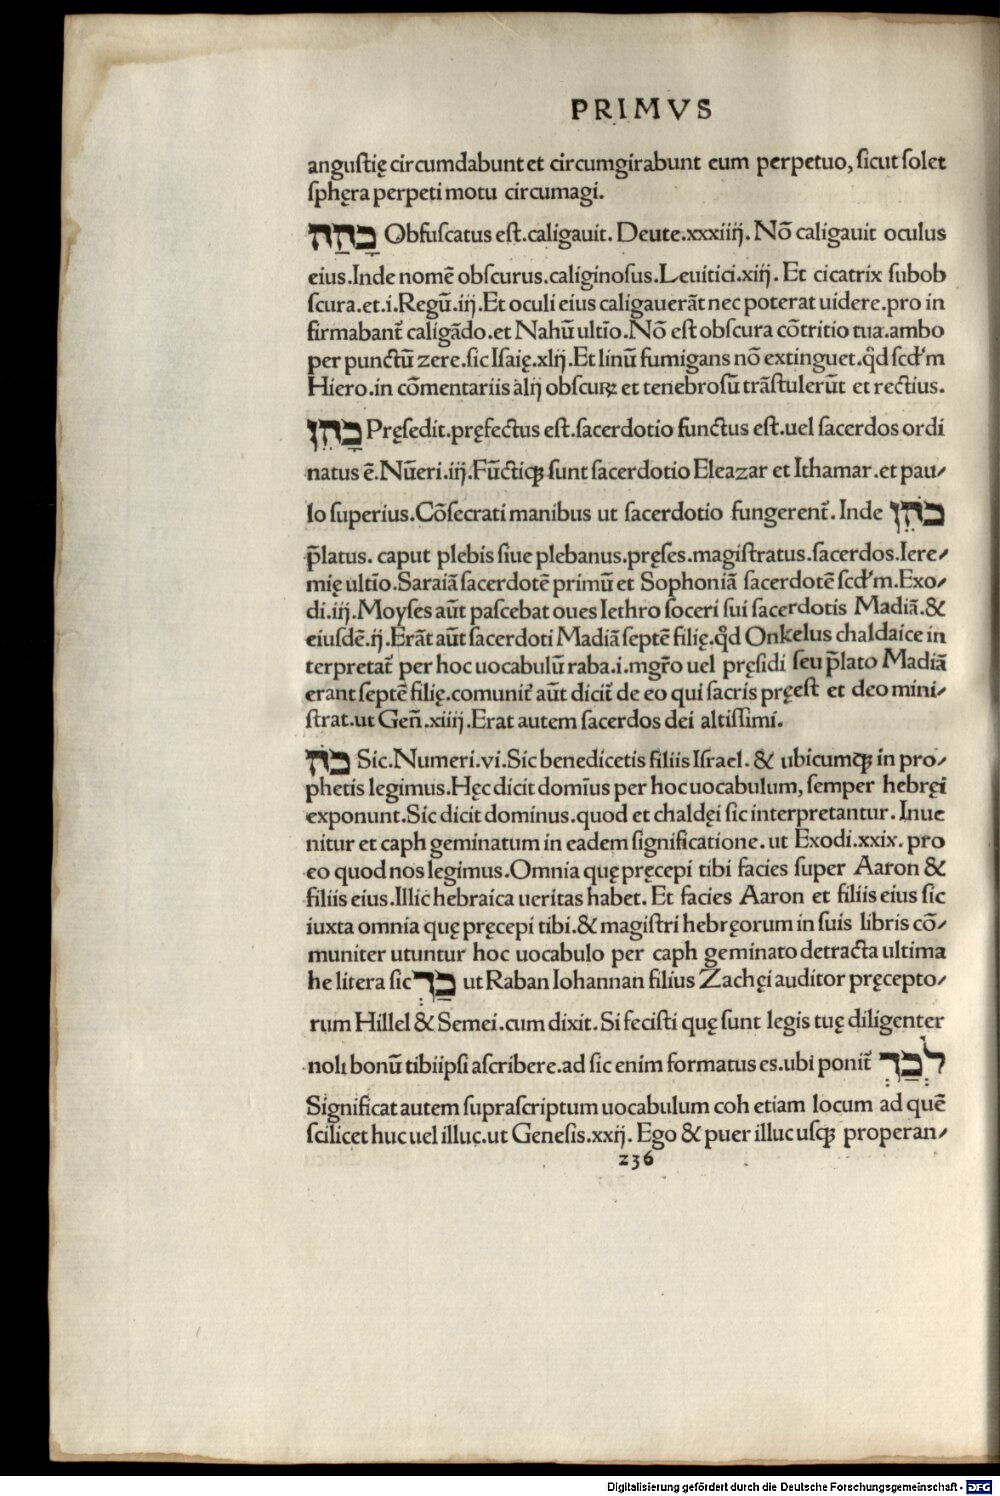 PRIMVS
anguſtię circumdabunt et circumgirabunt eum perpetuo, ſicut ſolet
ſphęra perpeti motu circumagi.
כָּהַה Obfuſcatus eſt.caligauit. Deute.xxxiiij. Nō caligauit oculus
eius.Inde nomē obſcurus.caliginoſus.Leuitici.xiij. Et cicatrix ſubob
ſcura.et.i.Regū.iij.Et oculi eius caligauerāt nec poterat uidere.pro in
firmabant᷑ caligādo.et Nahū ultīo.Nō eſt obſcura cōtritio tua.ambo
per punctū zere.ſic Iſaię.xlij.Et linū fumigans nō extinguet.qd̓ ſcd'm
Hiero.in cōmentariis alij obſcuꝝ et tenebroſū trāſtulerūt et rectius.
כָּהֵן Pręſedit.pręfectus eſt.ſacerdotio functus eſt.uel ſacerdos ordi
natus ē.Nūeri.iij.Fūctiqꝫ ſunt ſacerdotio Eleazar et Ithamar.et pau⸗
lo ſuperius.Cōſecrati manibus ut ſacerdotio fungerent᷑. Inde כֹּהֵן
p̄latus. caput plebis ſiue plebanus.pręſes.magiſtratus.ſacerdos.Iere⸗
mię ultīo.Saraiā ſacerdotē primū et Sophoniā ſacerdotē ſcd'm.Exo⸗
di.iij.Moyſes aūt paſcebat oues Iethro ſoceri ſui ſacerdotis Madiā.&
eiuſdē.ij.Erāt aūt ſacerdoti Madiā ſeptē filię.qd̓ Onkelus chaldaice in
terpretat᷑ per hoc uocabulū raba.i.mgr̄o uel pręſidi ſeu p̄lato Madiā
erant ſeptē filię.comunit᷑ aūt dicit᷑ de eo qui ſacris pręeſt et deo mini⸗
ſtrat.ut Geñ.xiiij.Erat autem ſacerdos dei altiſſimi.
כֹּה Sic.Numeri.vi.Sic benedicetis filiis Iſrael. & ubicumqꝫ in pro⸗
phetis legimus.Hęc dicit domīus per hoc uocabulum, ſemper hebręi
exponunt.Sic dicit dominus.quod et chaldęi ſic interpretantur. Inue
nitur et caph geminatum in eadem ſignificatione.ut Exodi.xxix. pro
eo quod nos legimus.Omnia quę pręcepi tibi facies ſuper Aaron &
filiis eius.Illic hebraica ueritas habet. Et facies Aaron et filiis eius ſic
iuxta omnia quę pręcepi tibi.& magiſtri hebręorum in ſuis libris cō⸗
muniter utuntur hoc uocabulo per caph geminato detracta ultima
he litera ſic כַּךְ ut Raban Iohannan filius Zachęi auditor pręcepto⸗
rum Hillel & Semei.cum dixit.Si feciſti quę ſunt legis tuę diligenter
noli bonū tibiipſi aſcribere.ad ſic enim formatus es.ubi ponit᷑ לְכַךְ
Significat autem ſupraſcriptum uocabulum coh etiam locum ad quē
ſcilicet huc uel illuc.ut Geneſis.xxij. Ego & puer illuc uſqꝫ properan⸗
236
Digitalisierung gefördert durch die Deutsche Forschungsgemeinschaft - DFG